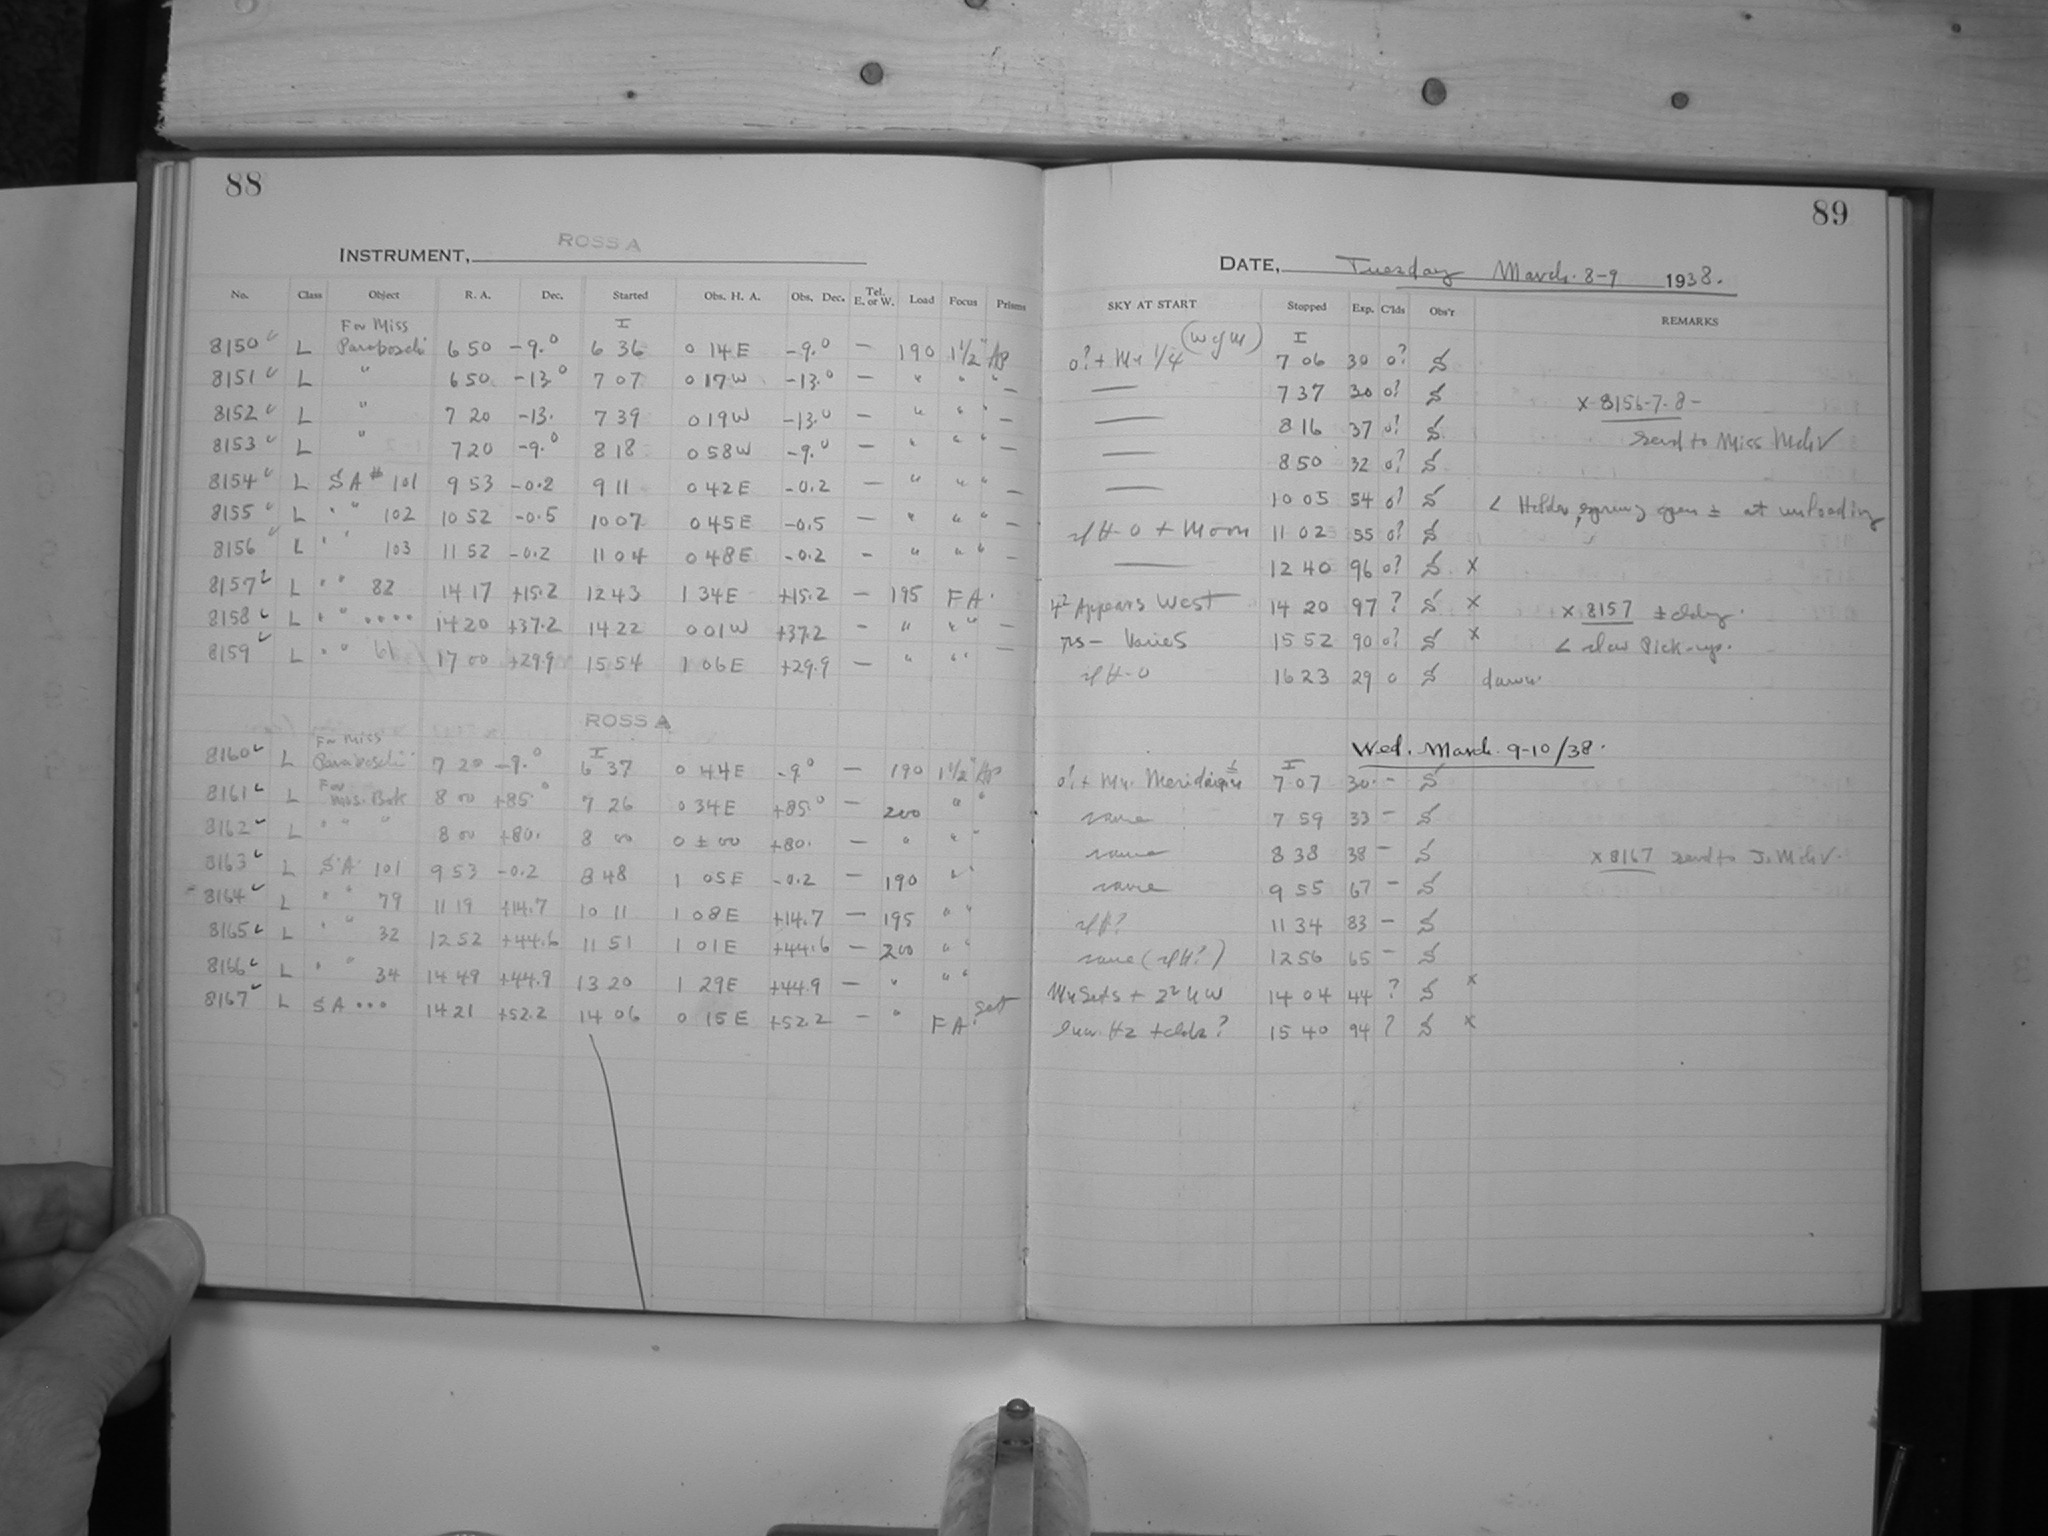 88
INSTRUMENT, ROSS A
No. Class Object R. A. Dec. Started Obs. H. A. Obs. Dec. Tel. E. or W. Load Focus Prisms
For Miss I
8150 L 6 50 -9.° 6 36 0 14E -9.° — 190 1½"
8151 L " 6 50 -13° 7 07 0 17W -13.° — " " "
8152 L " 7 20 -13. 7 39 0 19W -13.° — " " "
8153 L " 7 20 -9.° 8 18 0 58W -9.° — " " "
8154 L SA # 101 9 53 -0.2 9 11 0 42E -0.2 — " " "
8155 L " " 102 10 52 -0.5 10 07 0 45E -0.5 — " " "
8156 L " " 103 11 52 -0.2 11 04 0 48E -0.2 — " " "
8157 L " " 82 14 17 +15.2 12 43 1 34E +15.2 — 195 FA.
8158 L " " .... 14 20 +37.2 14 22 0 01W +37.2 — " " "
8159 L " " 61 17 00 +29.9 15 54 1 06E +29.9 — " " "
ROSS A
For Miss I
8160 L 7 20 -9.° 6 37 0 44E -9° — 190 1½"
For
8161 L Miss. Bok 8 00 +85° 7 26 0 34E +85.° — 200 " "
8162 L " " " 8 00 +80. 8 00 0 ± 00 +80. — " " "
8163 L S.A. 101 9 53 -0.2 8 48 1 05E -0.2 — 190 " "
8164 L " " 79 11 19 +14.7 10 11 1 08E +14.7 — 195 " "
8165 L " " 32 12 52 +44.6 11 51 1 01E +44.6 — 200 " "
8166 L " " 34 14 49 +44.9 13 20 1 29E +44.9 — " " "
8167 L SA ... 14 21 +52.2 14 06 0 15E +52.2 — " FA. Set
89
DATE, Tuesday March. 8-9 1938.
SKY AT START Stopped Exp. C'lds Obs'r REMARKS
I
0? + Mn 1/4 7 06 30 0? S
— 7 37 30 0? S x-8156-7-8-
— 8 16 37 0? S send to Miss McKV
— 8 50 32 0? S
— 10 05 54 0? S < Holder spring open ± at unloading
+ Moon 11 02 55 0? S
— 12 40 96 0? S x
Appears West 14 20 97 ? S x x 8157
Varies 15 52 90 0? S x < slow Pick-up.
16 23 29 0 S dawn
Wed. March. 9-10/38.
I
0? + Mn. Meridian ± 7 07 30 - S
same 7 59 33 - S
same 8 38 38 - S x 8167 send to J. McKV.
same 9 55 67 - S
11 34 83 - S
same 12 56 65 - S
Mn Sets + 14 04 44 ? S x
15 40 94 ? S x